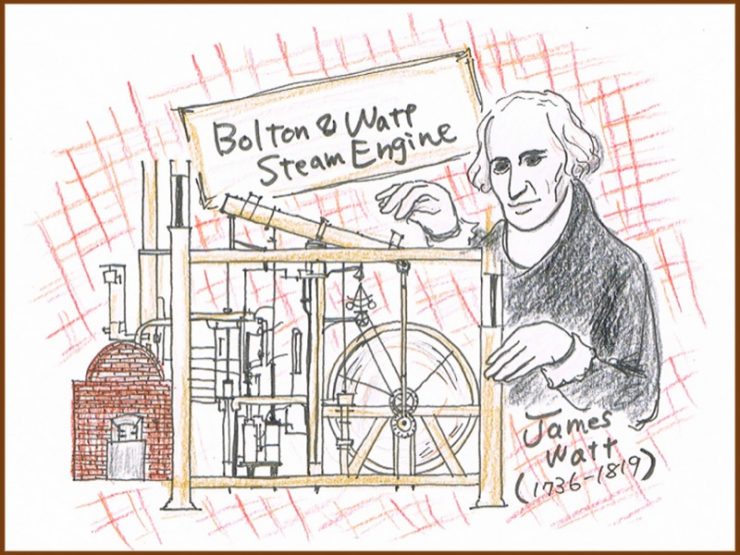 Bolton & Watt
Steam Engine
James
Watt
(1736-1819)